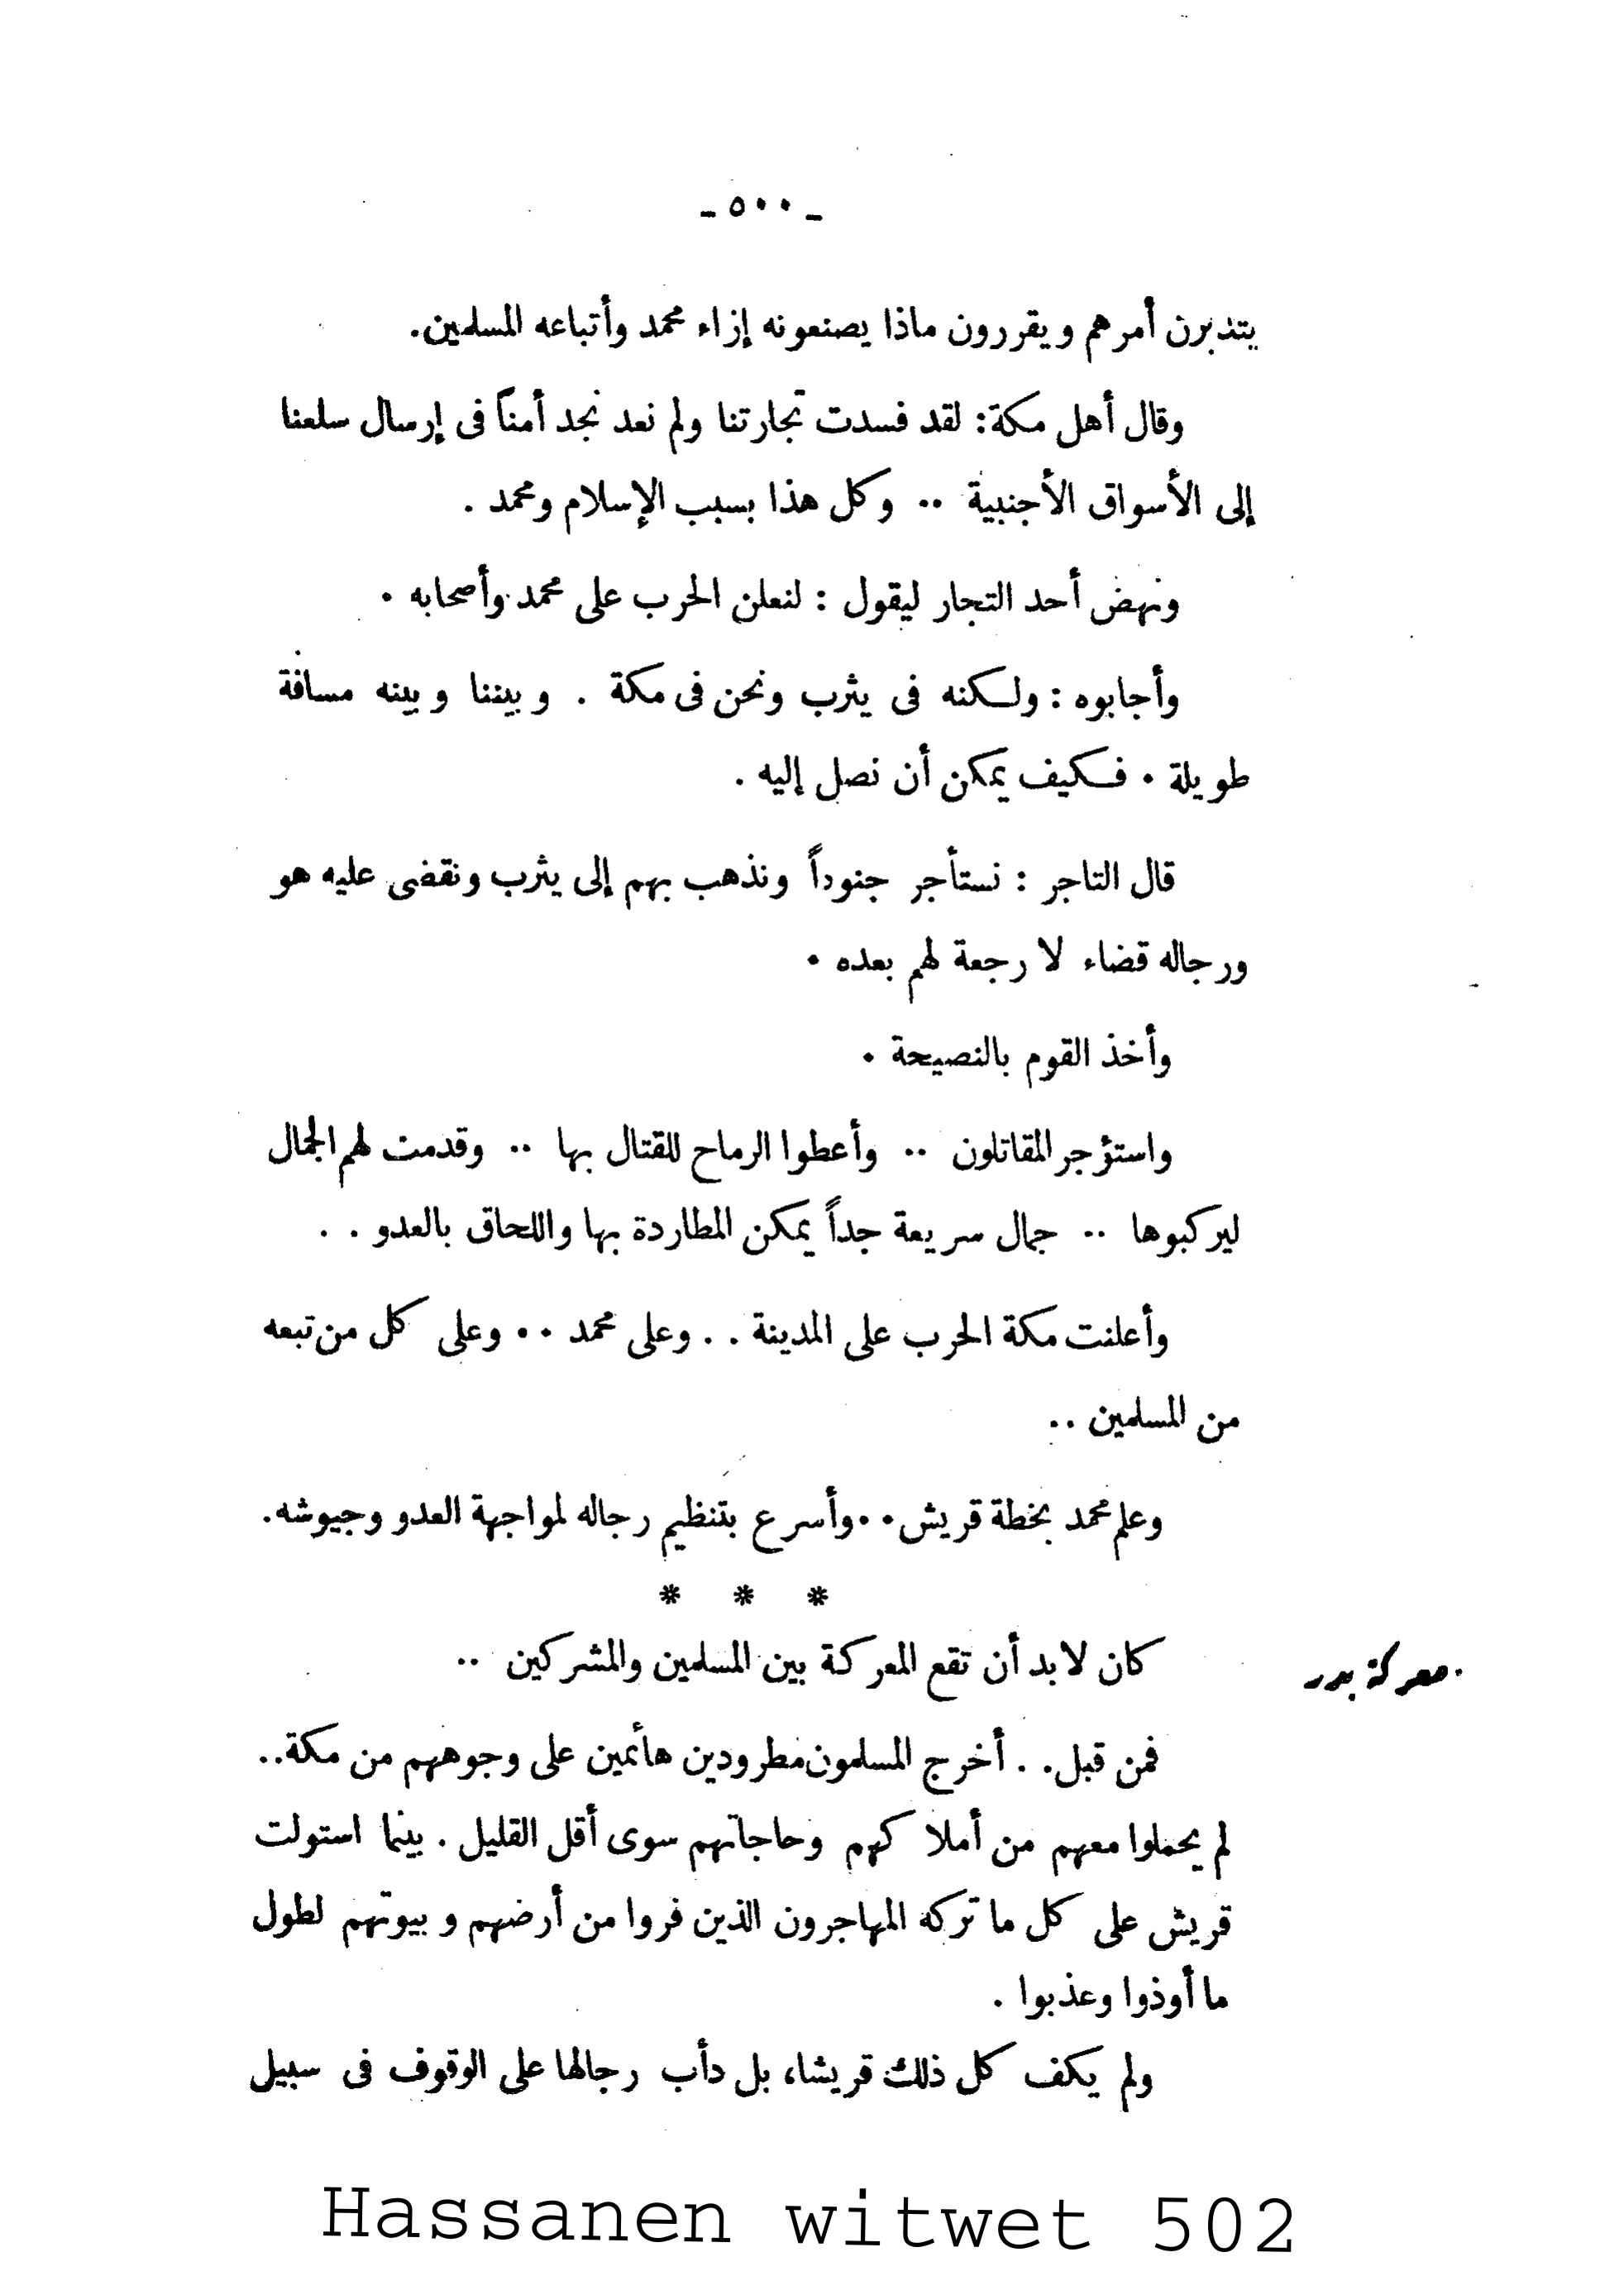 ـ ٥٠٠ ـ
يتدبرن أمرهم ويقررون ماذا يصنعونه إزاء محمد وأتباعه المسلمين.
وقال أهل مكة: لقد فسدت تجارتنا ولم نعد نجد أمناً فى إرسال سلعنا
إلى الأسواق الأجنبية .. وكل هذا بسبب الإسلام ومحمد .
ونهض أحد التجار ليقول : لنعلن الحرب على محمد وأصحابه .
وأجابوه : ولكنه فى يثرب ونحن فى مكة . وبيننا وبينه مسافة
طويلة . فكيف يمكن أن نصل إليه .
قال التاجر : نستأجر جنوداً ونذهب بهم إلى يثرب ونقضى عليه هو
ورجاله قضاء لا رجعة لهم بعده .
وأخذ القوم بالنصيحة .
واستؤجر المقاتلون .. وأعطوا الرماح للقتال بها .. وقدمت لهم الجمال
ليركبوها .. جمال سريعة جداً يمكن المطاردة بها واللحاق بالعدو . .
وأعلنت مكة الحرب على المدينة . . وعلى محمد .. وعلى كل من تبعه
من المسلمين ..
وعلم محمد بخطة قريش .. وأسرع بتنظيم رجاله لمواجهة العدو وجيوشه.
* * *
معركة بدر
كان لابد أن تقع المعركة بين المسلمين والمشركين ..
فمن قبل. . أخرج المسلمون مطرودين هائمين على وجوههم من مكة..
لم يحملوا معهم من أملاكهم وحاجاتهم سوى أقل القليل . بينما استولت
قريش على كل ما تركه المهاجرون الذين فروا من أرضهم وبيوتهم لطول
ما أوذوا وعذبوا .
ولم يكف كل ذلك قريشا، بل دأب رجالها على الوقوف فى سبيل
Hassanen witwet 502